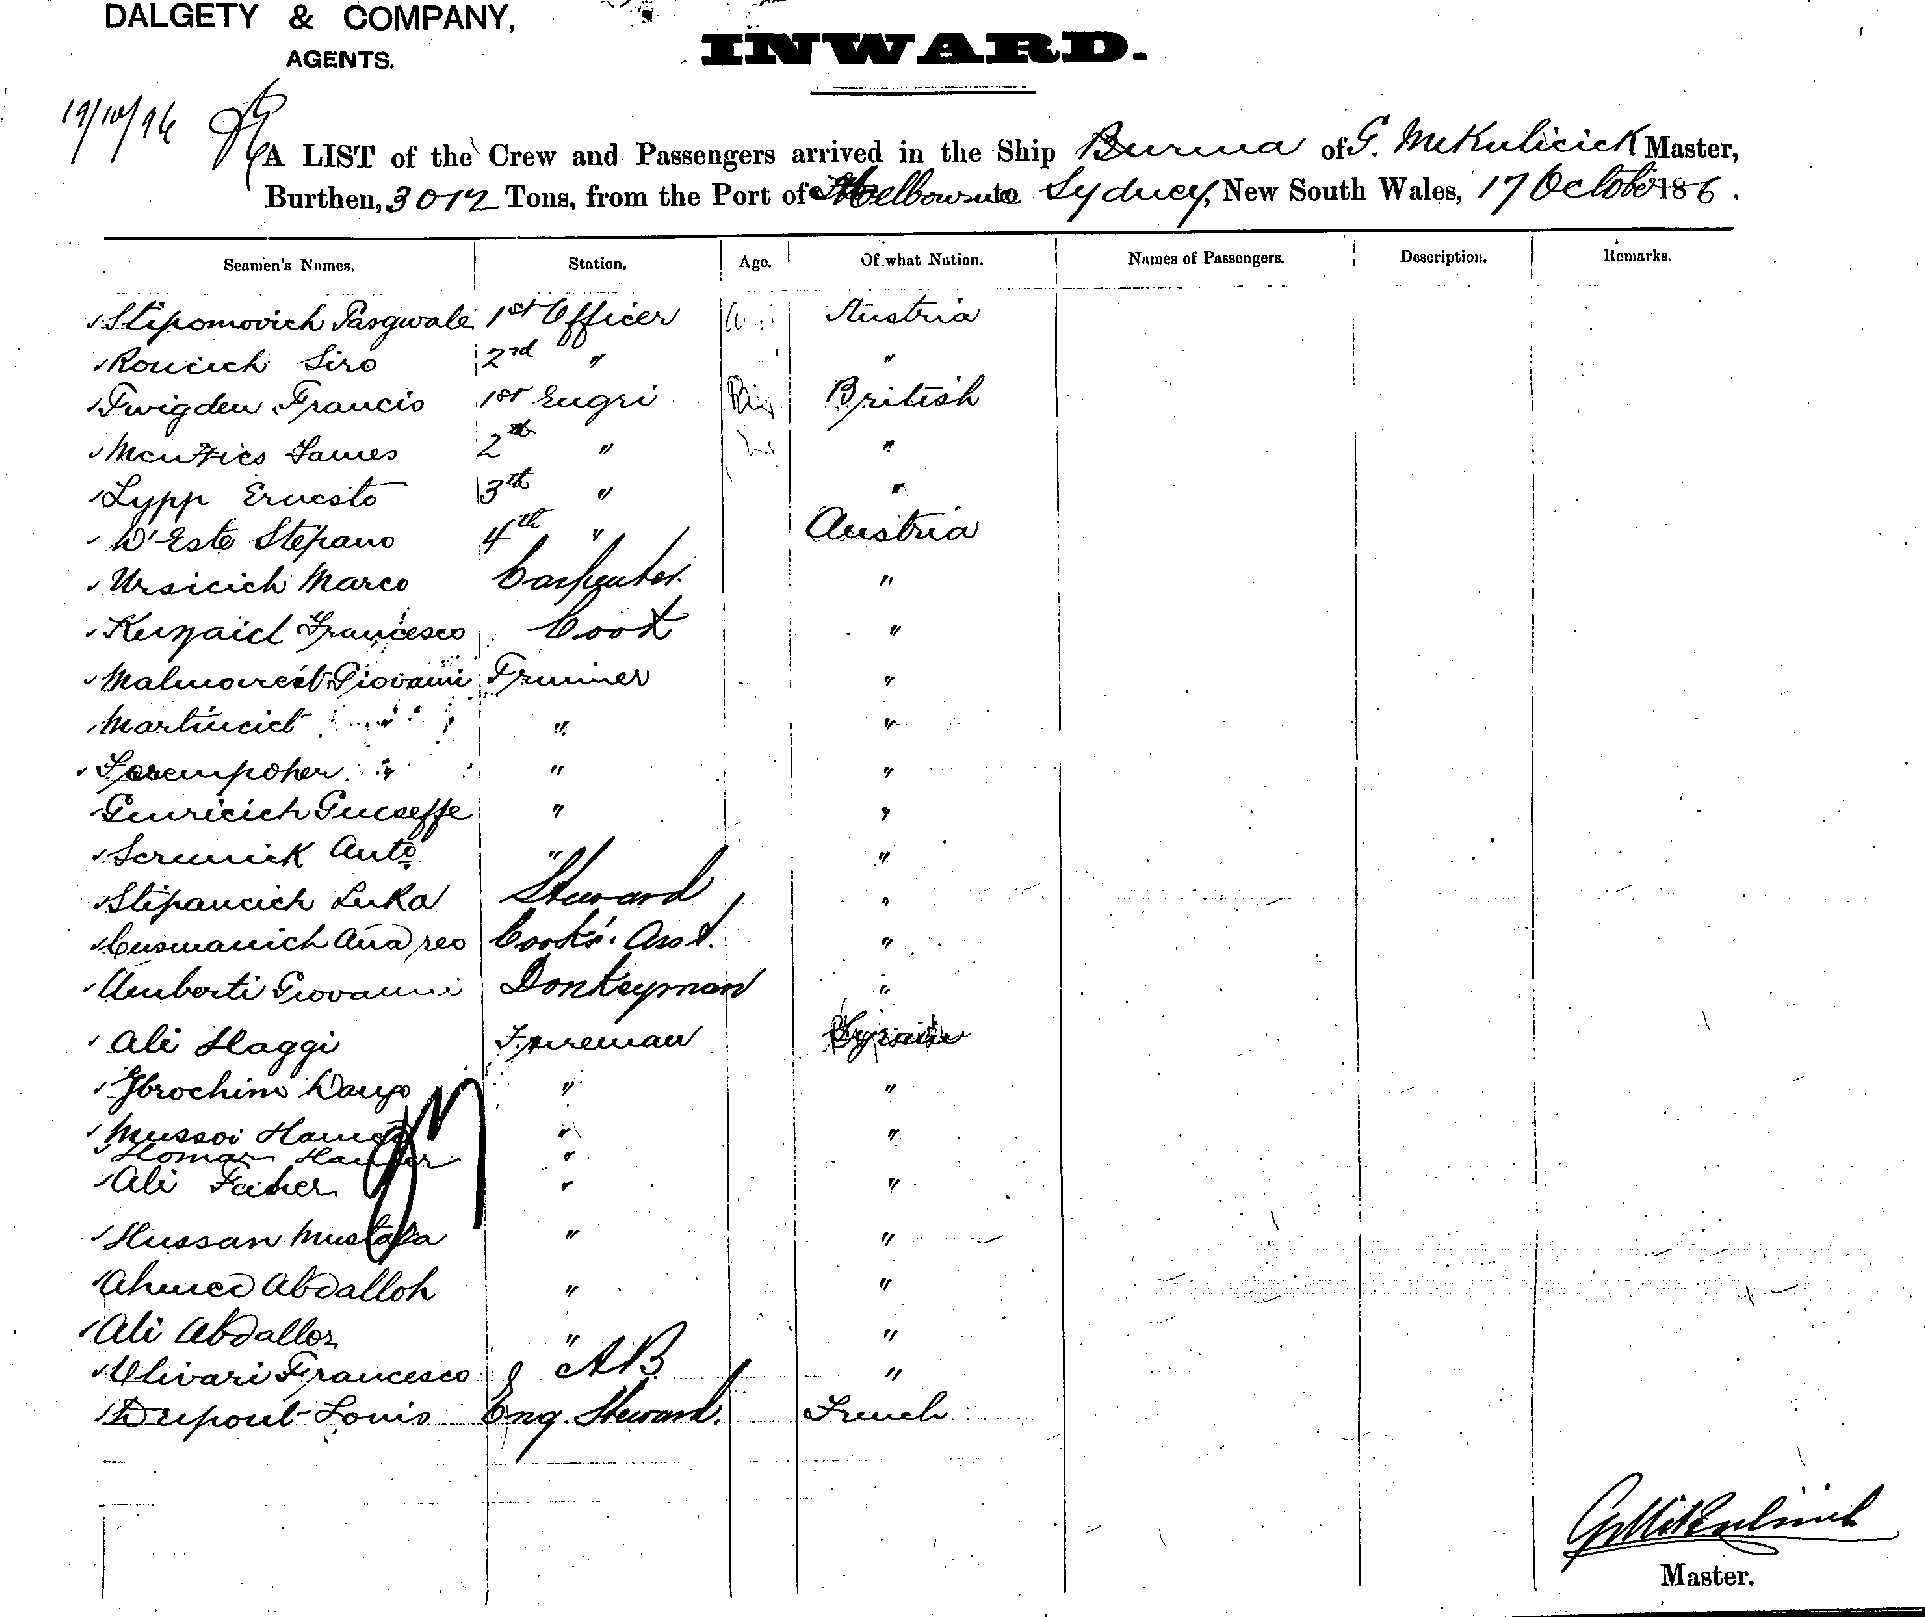 DALGETY & COMPANY,
AGENTS.
INWARD.
19/10/96
A LIST of the Crew and Passengers arrived in the Ship Burma of G. McKulicick Master,
Burthen, 3012 Tons, from the Port of Melbourne to Sydney, New South Wales, 17 October 186 .
Seamen's Names. Station. Age. Of what Nation. Names of Passengers. Description. Remarks.
Stipomovich Pasqwale 1st Officer Austria
Roncich Siro 2nd " "
Twigden Francis 1st Engri British
Menzies James 2th " "
Lypp Ernesto 3th " "
D'Este Stepano 4th " Austria
Ursicich Marco Carpenter "
Francesco Cook "
Giovanni Trimmer "
Martincict " " "
" " "
Giuricich Guiseffe " "
Anto " "
Stipancich Luka Steward "
Cusmanich Andreo Cook's Asst. "
Amberti Giovanni Donkeyman "
Ali Haggi Fireman
Ybrochim " "
Mussoi " "
Homar " "
Ali Faher " "
Hussan Mustafa " "
Ahmed Abdalloh " "
Ali Abdallor " "
Olivari Francesco AB "
Dupont Louis Eng. Steward. French
Master.